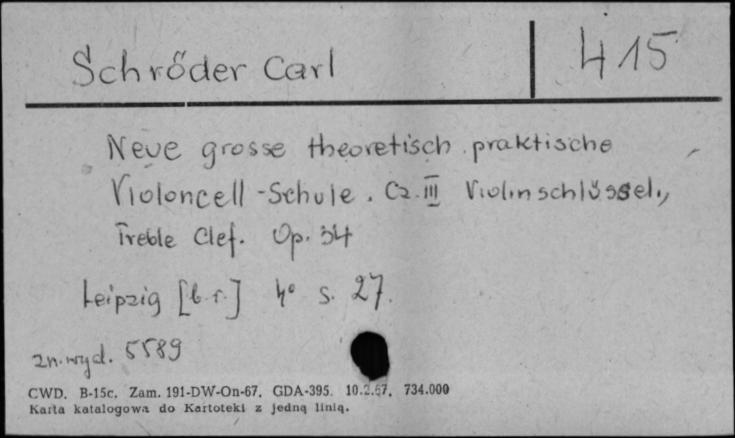 Schröder Carl 415
Neue grosse theoretisch praktische
Violoncell - Schule. Cz. III Violinschlüssel.,
Treble Clef. Op. 34
Leipzig [b.r.] 4° s. 27.
zn. wyd. 5589
CWD. B-15c. Zam. 191-DW-On-67. GDA-395. 10.2.67. 734.000
Karta katalogowa do Kartoteki z jedną linią.